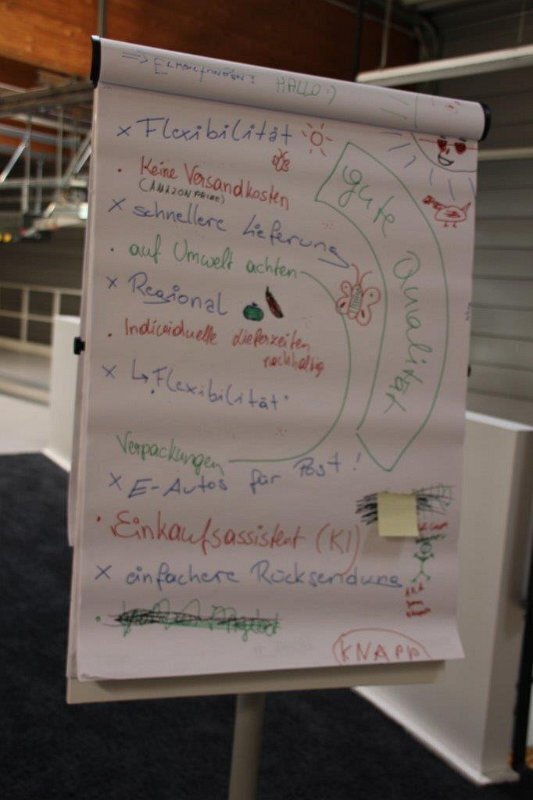 HALLO :)
x Flexibilität
• Keine Versandkosten
(AMAZON PRIME)
x schnellere Lieferung
• auf Umwelt achten
x Regional
• Individuelle Lieferzeiten
nachhaltig
x ↳ Flexibilität
Verpackungen
x E-Autos für Post!
• Einkaufsassistent (KI)
x einfachere Rücksendung
gute Qualität
KNAPP